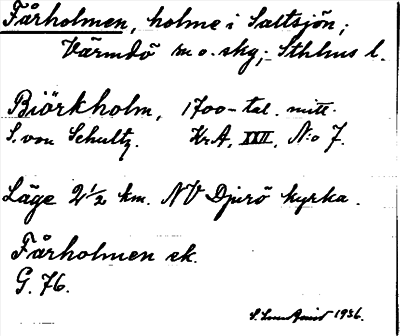 Fårholmen, holme i Saltsjön;
Värmdö m o. skg; Sthlms l.
Biörkholm, 1700-tal. mitt.
S. von Schultz. Kr A, XXII, N:o 7.
Läge 2 1/2 km. NV Djurö kyrka.
Fårholmen ek.
G. 76.
1936.